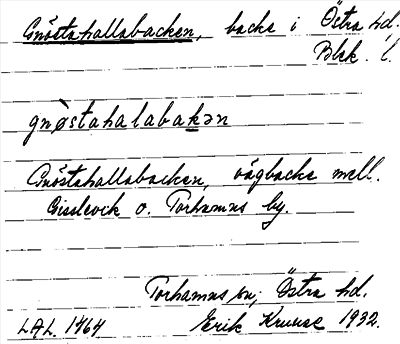 Gnöstahallabacken, backe i Östra hd.
Blek. l.
gnöstahalabakən
Gnöstahallabacken, vägbacke mell.
Gisslevik o. Torhamns by.
Torhamns sn; Östra hd.
LAL. 1464 Erik Kruuse 1932.